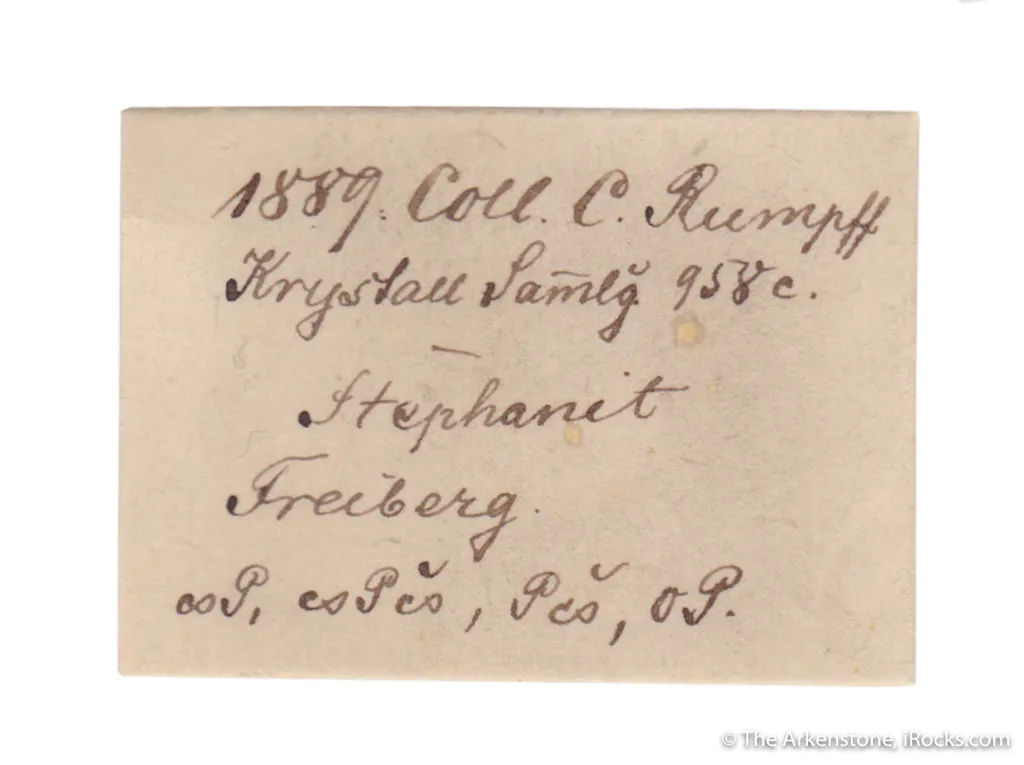 1889. Coll. C. Rumpff
Krystall Sam̅lğ 958 c.
—
Stephanit
Freiberg.
∞P, ∞P∞̆, P∞̆, oP.
© The Arkenstone, iRocks.com